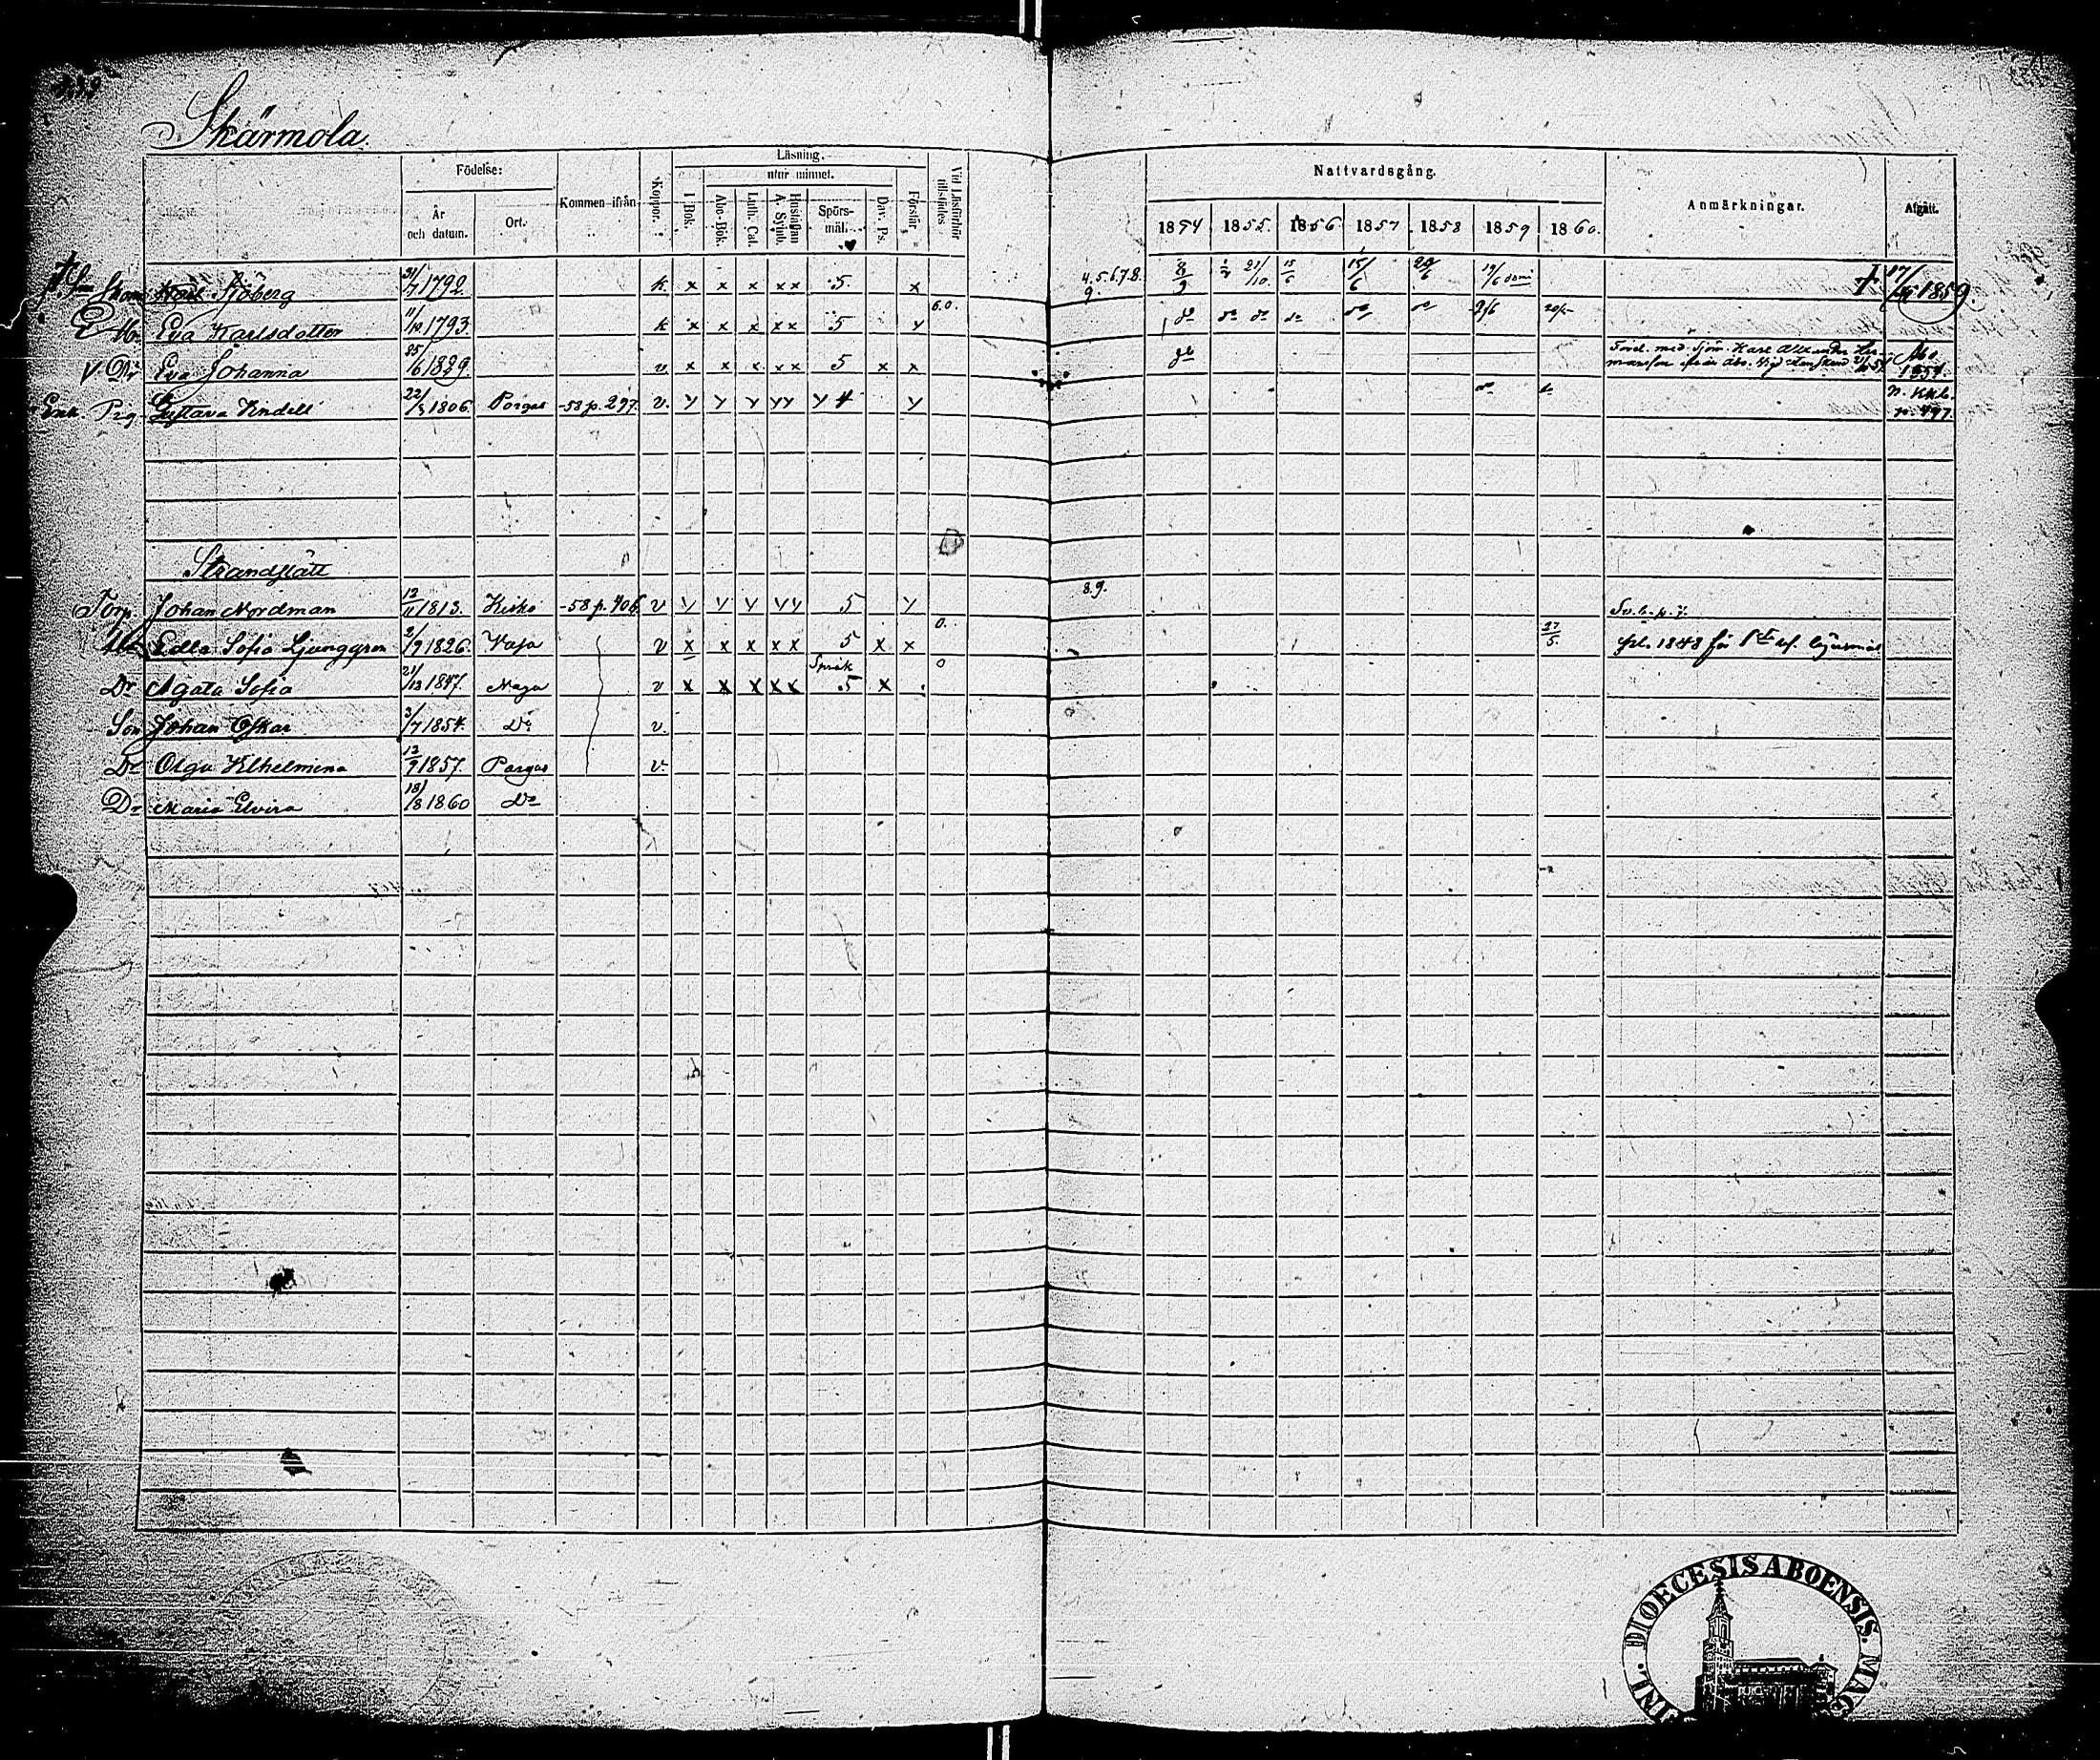 Skärmola.
Födelse:
År och datum.
Ort.
Kommen ifrån
Koppor.
Läsning.
utur minnet.
I Bok.
Abc-Bok.
Luth. Cat.
Hustaflan A. Symb.
Spörsmål.
Dav. Ps.
Förstår
Vid Läsförhör tillstädes
Nattvardsgång.
1854 1855. 1856 1857 1858 1859 1860.
Anmärkningar.
Afgått.
Sjöberg 31/7 1792. k x x x xx 5 x 4.5.6.7.8. 9. 21/10 15/6 15/6 19/6 † 17/ 1859
Eva Karlsdotter 11/10 1793 k x x x xx 5 y 6.0. do do do do do do 20/5
V Dr Eva Johanna 25/6 1839. v x x x xx 5 x x do med Karl Åbo 1854.
Enk. Prg. Gustava Lindell 22/3 1806. Pargas -58 p. 297. v. y y y yy y 4 y N. Kkb. p. 497.
Strandslätt
Torp. Johan Nordman 12/11 1813. Kisko -58 p. 406. v y y y yy 5 y 8.9.
Edla Sofia Ljunggren 2/9 1826. Vasa v x x x xx 5 x x 0. 27/5. 1848 för
Dr Agata Sofia 21/12 1847. v x x x xx Språk 5 x 0
Son Johan Oskar 3/7 1854. Do v.
Dr Olga Vilhelmina 12/9 1857. Pargas v.
Dr Maria Elvira 18/8 1860 Do
DIOECESIS ABOENSIS.